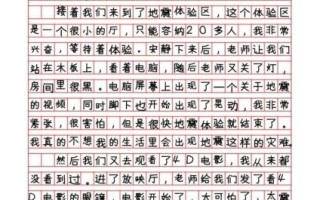 接着我们来到了地震体验区，这个体验区
是一个很小的厅，只能容纳20多人，我非常
兴奋，等待着体验。安静下来后，老师让我们
站在木板上，看着电脑，随后老师又关了灯，
房间里很黑。电脑屏幕上出现了一个关于地震
的视频，同时脚下也开始出现了晃动，我非常
紧张，很害怕，但是很快地震体验就结束了。
我真的不想我的生活里会出现地震这样的灾难。
然后我们又去观看了4D电影，我从来都
没看到过。进了放映厅，老师给我们发了看4
D电影的眼镜，电影开始了，太可怕了，大